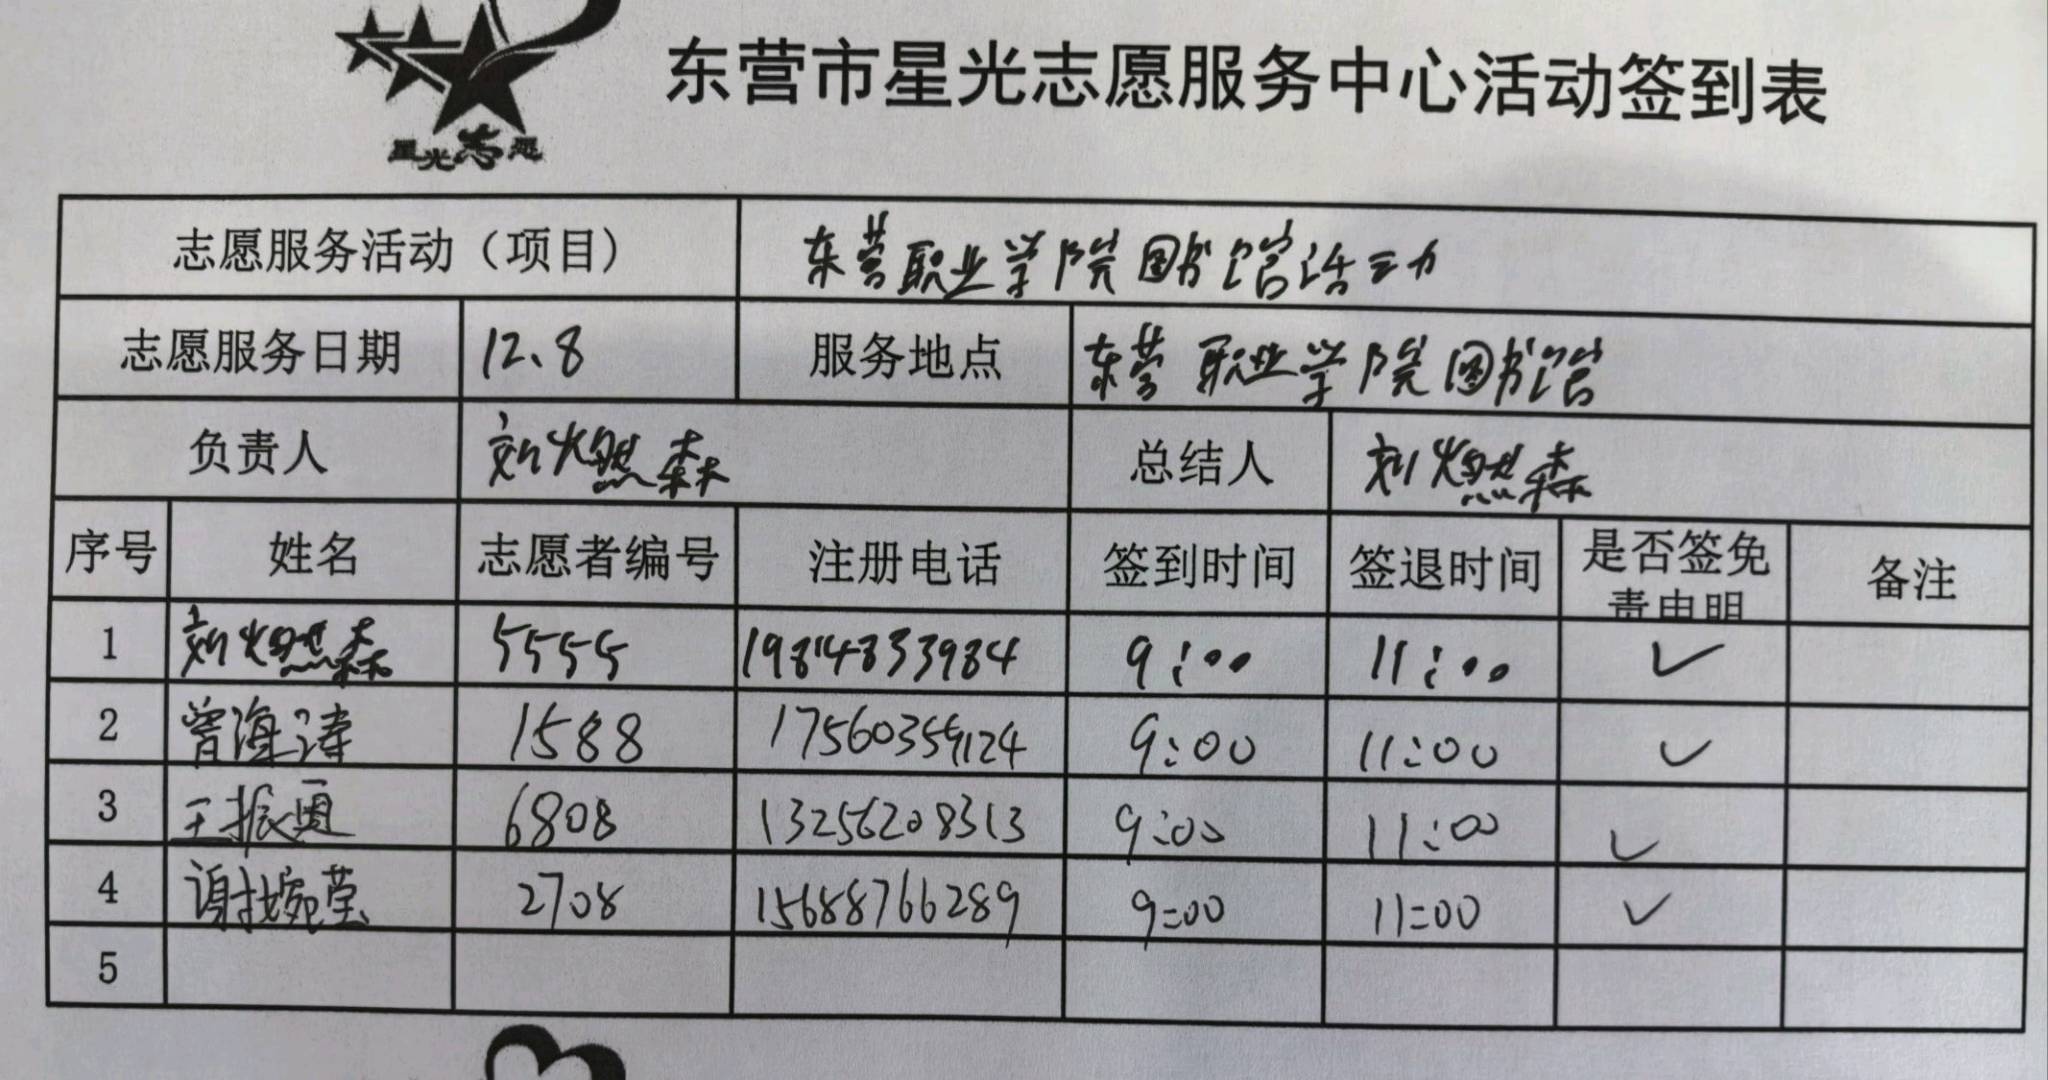 星光志愿
东营市星光志愿服务中心活动签到表
志愿服务活动（项目） 东营职业学院图书馆活动
志愿服务日期 12.8 服务地点 东营职业学院图书馆
负责人 刘燃森 总结人 刘燃森
序号 姓名 志愿者编号 注册电话 签到时间 签退时间 是否签免责申明 备注
1 刘燃森 5555 19814833984 9:00 11:00 ✓
2 曾海涛 1588 17560359124 9:00 11:00 ✓
3 王振 6808 13256208313 9:00 11:00 ✓
4 谢婉莹 2708 15688766289 9:00 11:00 ✓
5